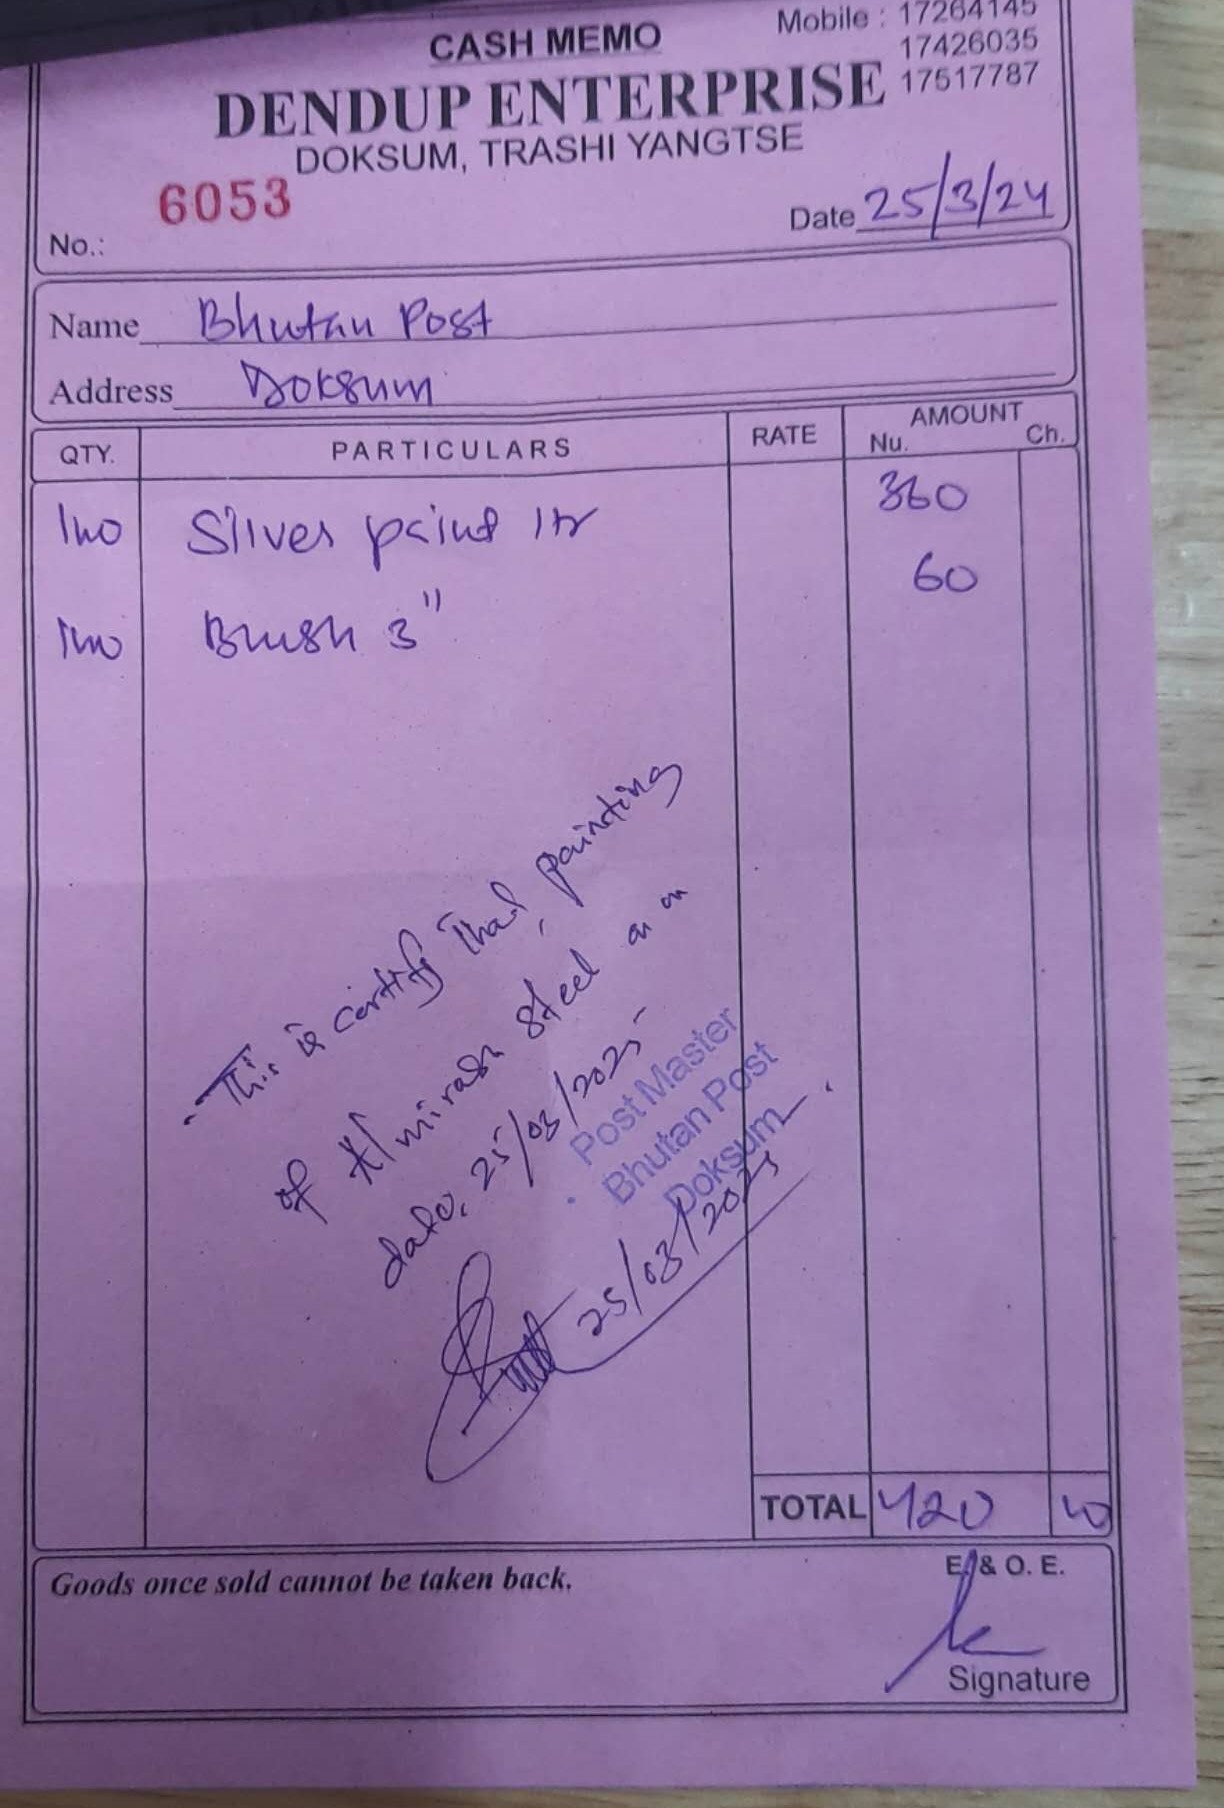 CASH MEMO
Mobile : 17264145
17426035
17517787
DENDUP ENTERPRISE
DOKSUM, TRASHI YANGTSE
6053
No.:
Date 25/3/24
Name Bhutan Post
Address Doksum
QTY. PARTICULARS RATE AMOUNT
Nu. Ch.
1no Silver paint 1ltr 360
1no Brush 3" 60
This is certify that, painting
of Almirash steel on on
date, 25/03/2025
Post Master
Bhutan Post
Doksum
25/03/2025
TOTAL 420
Goods once sold cannot be taken back.
E. & O. E.
Signature